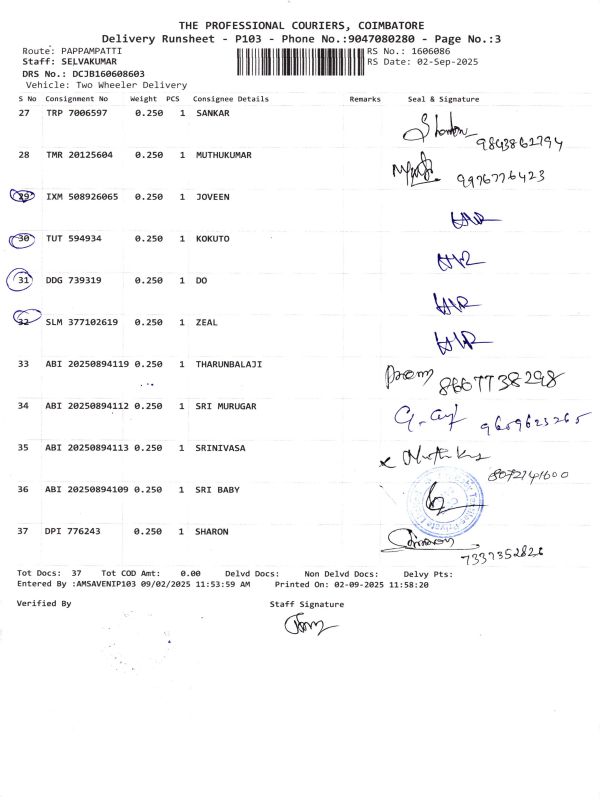 THE PROFESSIONAL COURIERS, COIMBATORE
Delivery Runsheet - P103 - Phone No.:9047080280 - Page No.:3
Route: PAPPAMPATTI RS No.: 1606086
Staff: SELVAKUMAR RS Date: 02-Sep-2025
DRS No.: DCJB160608603
Vehicle: Two Wheeler Delivery
S No Consignment No Weight PCS Consignee Details Remarks Seal & Signature
27 TRP 7006597 0.250 1 SANKAR
9843862794
28 TMR 20125604 0.250 1 MUTHUKUMAR
9976776423
29 IXM 508926065 0.250 1 JOVEEN
30 TUT 594934 0.250 1 KOKUTO
31 DDG 739319 0.250 1 DO
32 SLM 377102619 0.250 1 ZEAL
33 ABI 20250894119 0.250 1 THARUNBALAJI
Prem 8667738298
34 ABI 20250894112 0.250 1 SRI MURUGAR
9659623265
35 ABI 20250894113 0.250 1 SRINIVASA
8072141600
36 ABI 20250894109 0.250 1 SRI BABY
37 DPI 776243 0.250 1 SHARON
7337352826
Tot Docs: 37 Tot COD Amt: 0.00 Delvd Docs: Non Delvd Docs: Delvy Pts:
Entered By :AMSAVENIP103 09/02/2025 11:53:59 AM Printed On: 02-09-2025 11:58:20
Verified By Staff Signature